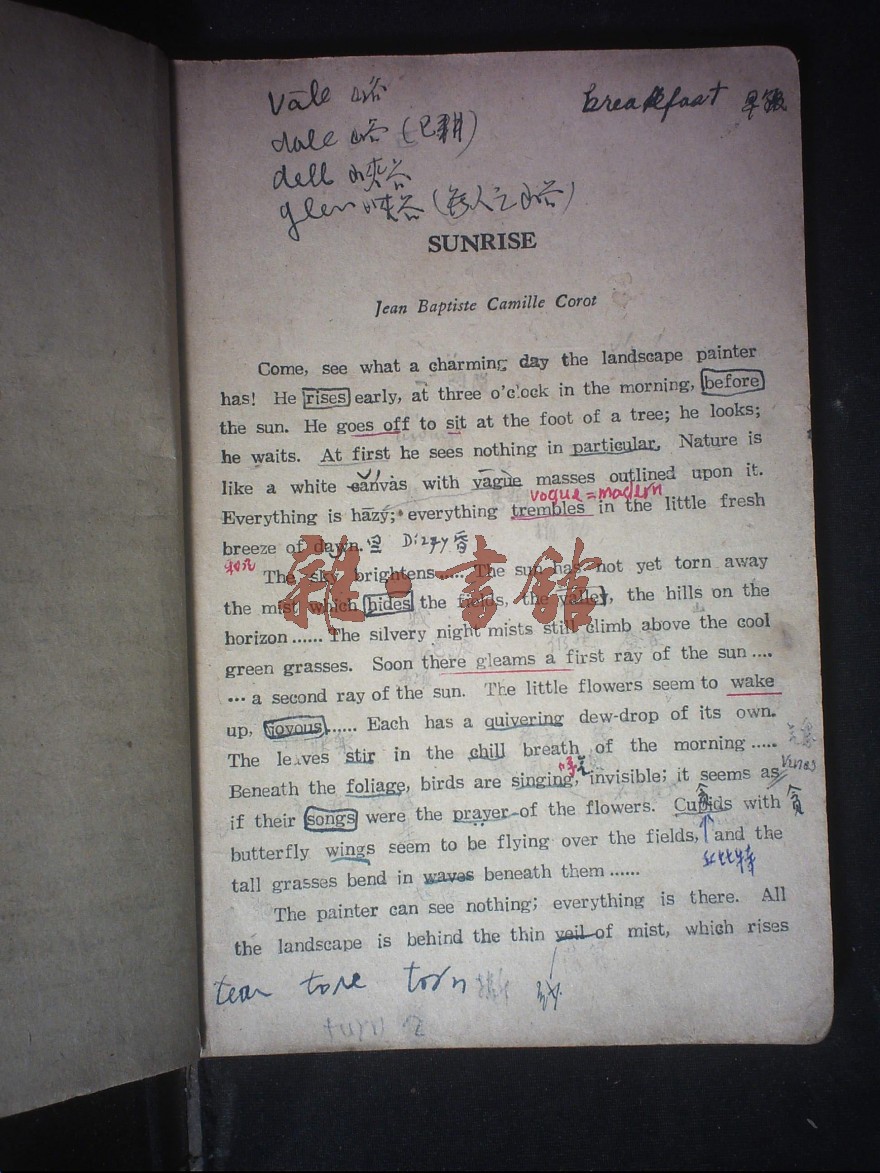 vāle 山谷
breakfast 早飯
dale 山谷
dell 山峡谷
glen 峡谷
SUNRISE
Jean Baptiste Camille Corot
Come, see what a charming day the landscape painter
has! He rises early, at three o'clock in the morning, before
the sun. He goes off to sit at the foot of a tree; he looks;
he waits. At first he sees nothing in particular. Nature is
like a white canvas with vague masses outlined upon it.
vogue = modern
Everything is hazy; everything trembles in the little fresh
breeze of dawn. Dizzy
The sky brightens...... The sun has not yet torn away
the mist which hides the fields, the valley, the hills on the
horizon...... The silvery night mists still climb above the cool
green grasses. Soon there gleams a first ray of the sun....
... a second ray of the sun. The little flowers seem to wake
up, joyous...... Each has a quivering dew-drop of its own.
The leaves stir in the chill breath of the morning.....
Beneath the foliage, birds are singing, invisible; it seems as
if their songs were the prayer of the flowers. Cupids with
貪
butterfly wings seem to be flying over the fields, and the
丘比特
tall grasses bend in waves beneath them......
The painter can see nothing; everything is there. All
the landscape is behind the thin veil of mist, which rises
tear tore torn
turn
雜·書館